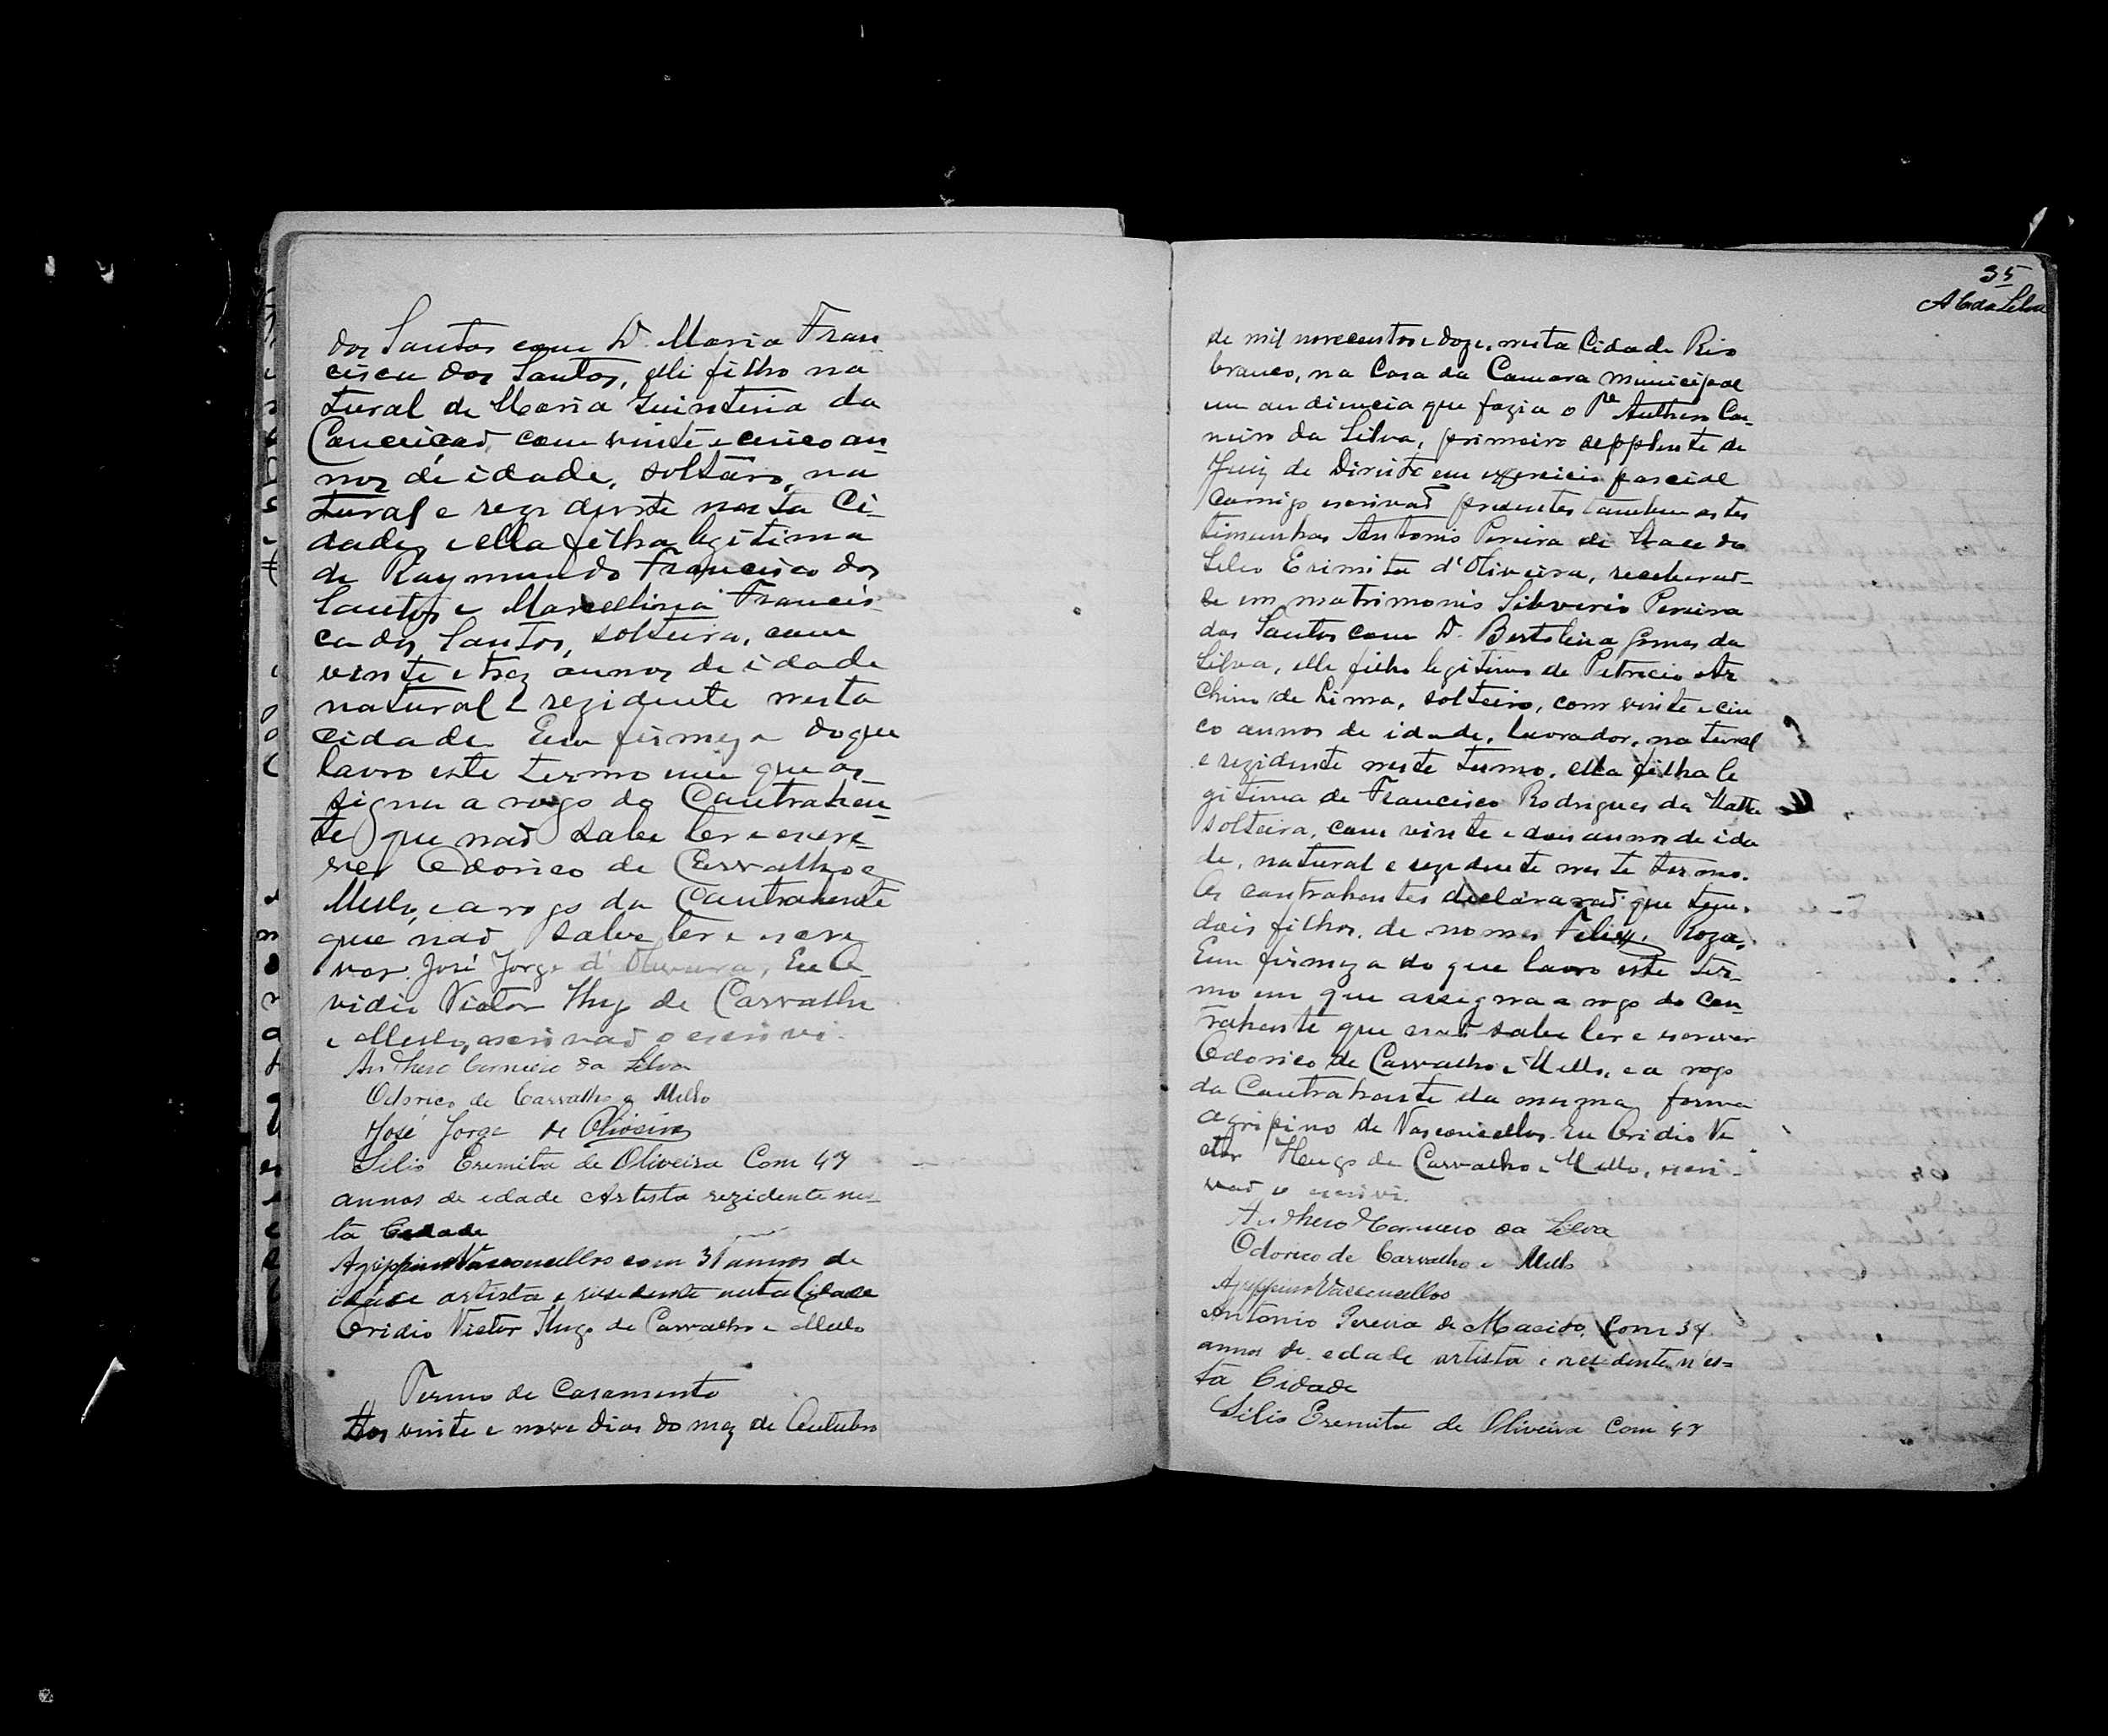 dos Santos com D. Maria Fran-
cisca dos Santos, elle filho na
tural de Maria Quinteria da
Conceição, com vinte e cinco an-
nos de idade, solteiro, na
tural e rezidente nesta Ci-
dade, e ella filha legitima
de Raymundo Francisco dos
Santos e Marcellina Francis-
ca dos Santos, solteira, com
vinte e trez annos de idade
natural e rezidente nesta
cidade. Em firmeza do que
lavro este termo em que as-
signa a rogo do Contrahen-
te que não sabe ler e escre-
ver Odorico de Carvalho e
Mello, e a rogo da Contrahente
que não sabe ler e escre
ver José Jorge d'Oliveira, Eu O-
vidio Victor Hugo de Carvalho
e Mello, escrivão o escrevi.
Anthero Carneiro da Silva
Odorico de Carvalho e Mello
José Jorge de Oliveira
Silio Eremita de Oliveira Com 47
annos de edade Artista rezidente nes-
ta Cidade
Agrippino Vasconcellos com 31 annos de
idade artista e residente nesta Cidade
Ovidio Victor Hugo de Carvalho e Mello
Termo de Casamento
Aos vinte e nove dias do mez de Outubro
35
A C da Silva
de mil novecentos e doze, nesta Cidade Rio
branco, na Casa da Camara Municipal
em audiencia que fazia o Anthero Car-
neiro da Silva, primeiro supplente de
Juiz de Direito em exercicio parcial
Comigo escrivão prezentes tambem as tes
timunhas Antonio Pereira de Macedo
Silio Erimita d'Oliveira, receberão-
se em matrimonio Silverio Pereira
dos Santos com D. Bertolina Gomes da
Silva, elle filho legitimo de Petrocio Ar
chino de Lima, solteiro, com vinte e cin
co annos de idade, lavrador, natural
e rezidente neste termo, ella filha le
gitima de Francisco Rodrigues da Matta
solteira, com vinte e dois annos de ida
de, natural e rezidente neste termo.
Os contrahentes declararão que tem
dois filhos, de nomes Roza.
Em firmeza do que lavro este ter-
mo em que assigna a rogo do Con-
trahente que não sabe ler e escrever
Odorico de Carvalho e Mello, e a rogo
da Contrahente da mesma forma
Agripino de Vasconcellos. Eu Ovidio Vi
ctor Hugo de Carvalho e Mello, escri-
vão o escrevi.
Anthero Carneiro da Silva
Odorico de Carvalho e Mello
Agrippino Vasconcellos
Antonio Pereira de Macedo, Com 34
annos de edade artista e residente n'es=
ta Cidade
Silio Eremita de Oliveira Com 47